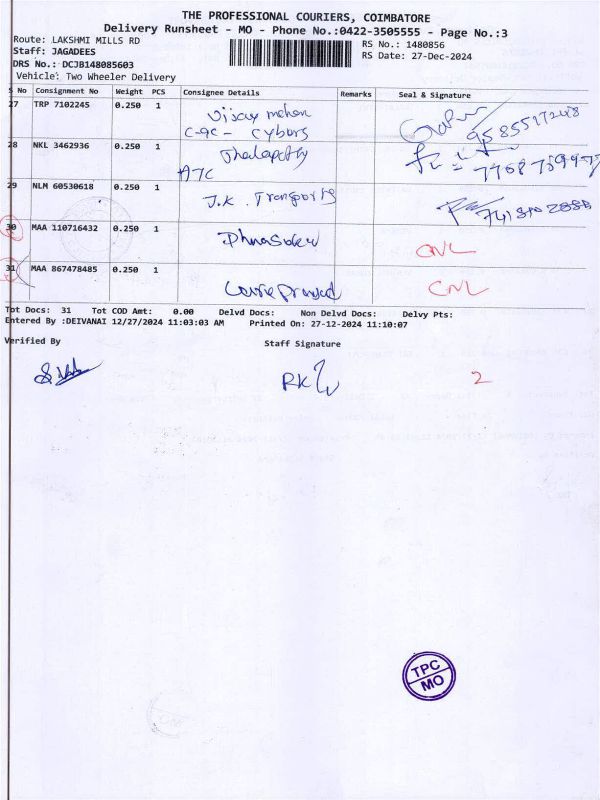 THE PROFESSIONAL COURIERS, COIMBATORE
Delivery Runsheet - MO - Phone No.:0422-3505555 - Page No.:3
Route: LAKSHMI MILLS RD
RS No.: 1480856
Staff: JAGADEES
RS Date: 27-Dec-2024
DRS No.: DCJB148085603
Vehicle: Two Wheeler Delivery
S No Consignment No Weight PCS Consignee Details Remarks Seal & Signature
27 TRP 7102245 0.250 1 Vijay mohan
28 NKL 3462936 0.250 1 Thalapathy
A7C
29 NLM 60530618 0.250 1 J.K. Transports
30 MAA 110716432 0.250 1 CNL
31 MAA 867478485 0.250 1 CNL
Tot Docs: 31 Tot COD Amt: 0.00 Delvd Docs: Non Delvd Docs: Delvy Pts:
Entered By :DEIVANAI 12/27/2024 11:03:03 AM Printed On: 27-12-2024 11:10:07
Verified By
Staff Signature
2
TPC
MO